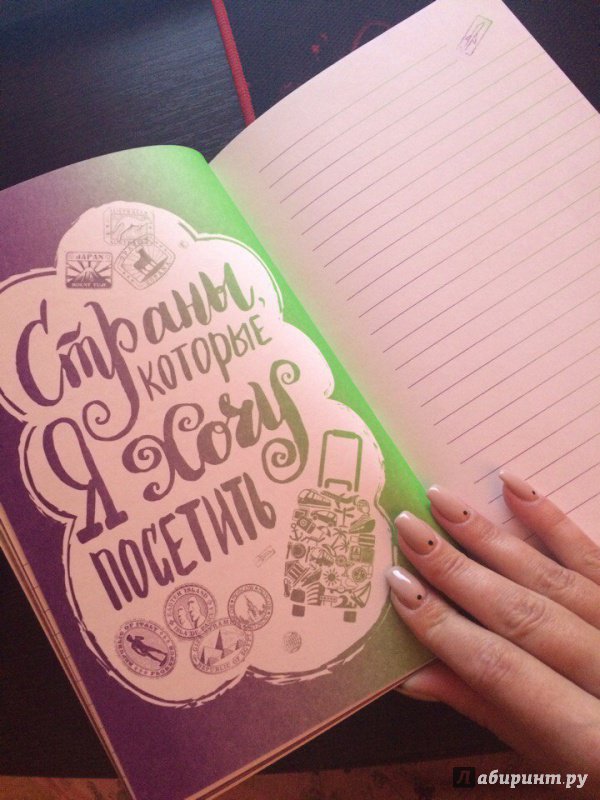 JAPAN
MOUNT FUJI
Страны,
которые
Я Хочу
посетить
REPUBLIC OF
Лабиринт.ру